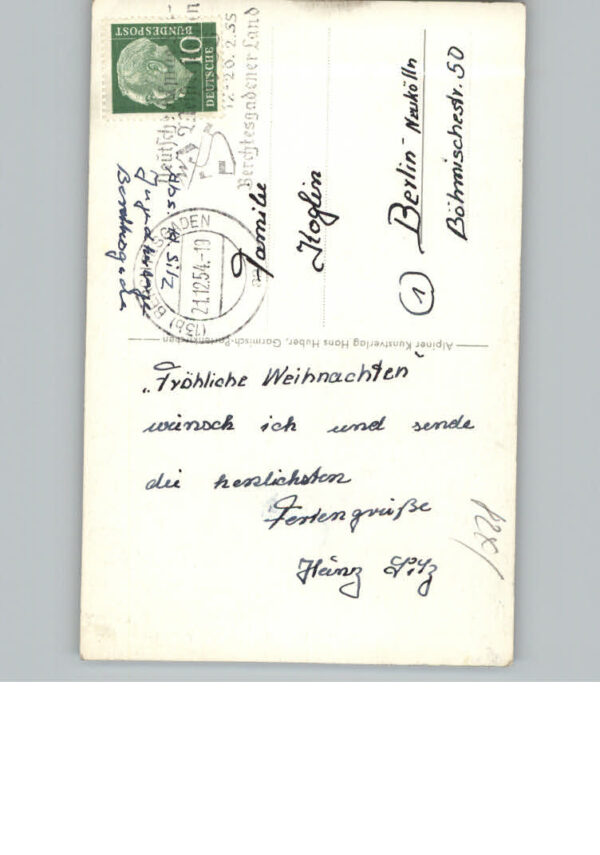 10
DEUTSCHE
BUNDESPOST
12.-20.2.55
Berchtesgadener Land
21.12.54.-19
(13b) BERCHTESGADEN
Abs. H. Silz
Familie
Koglin
① Berlin-Neukölln
Böhmischestr. 50
Alpiner Kunstverlag Hans Huber, Garmisch-Partenkirchen
„Fröhliche Weihnachten"
wünsch ich und sende
die herzlichsten
Feriengrüße
Heinz Silz